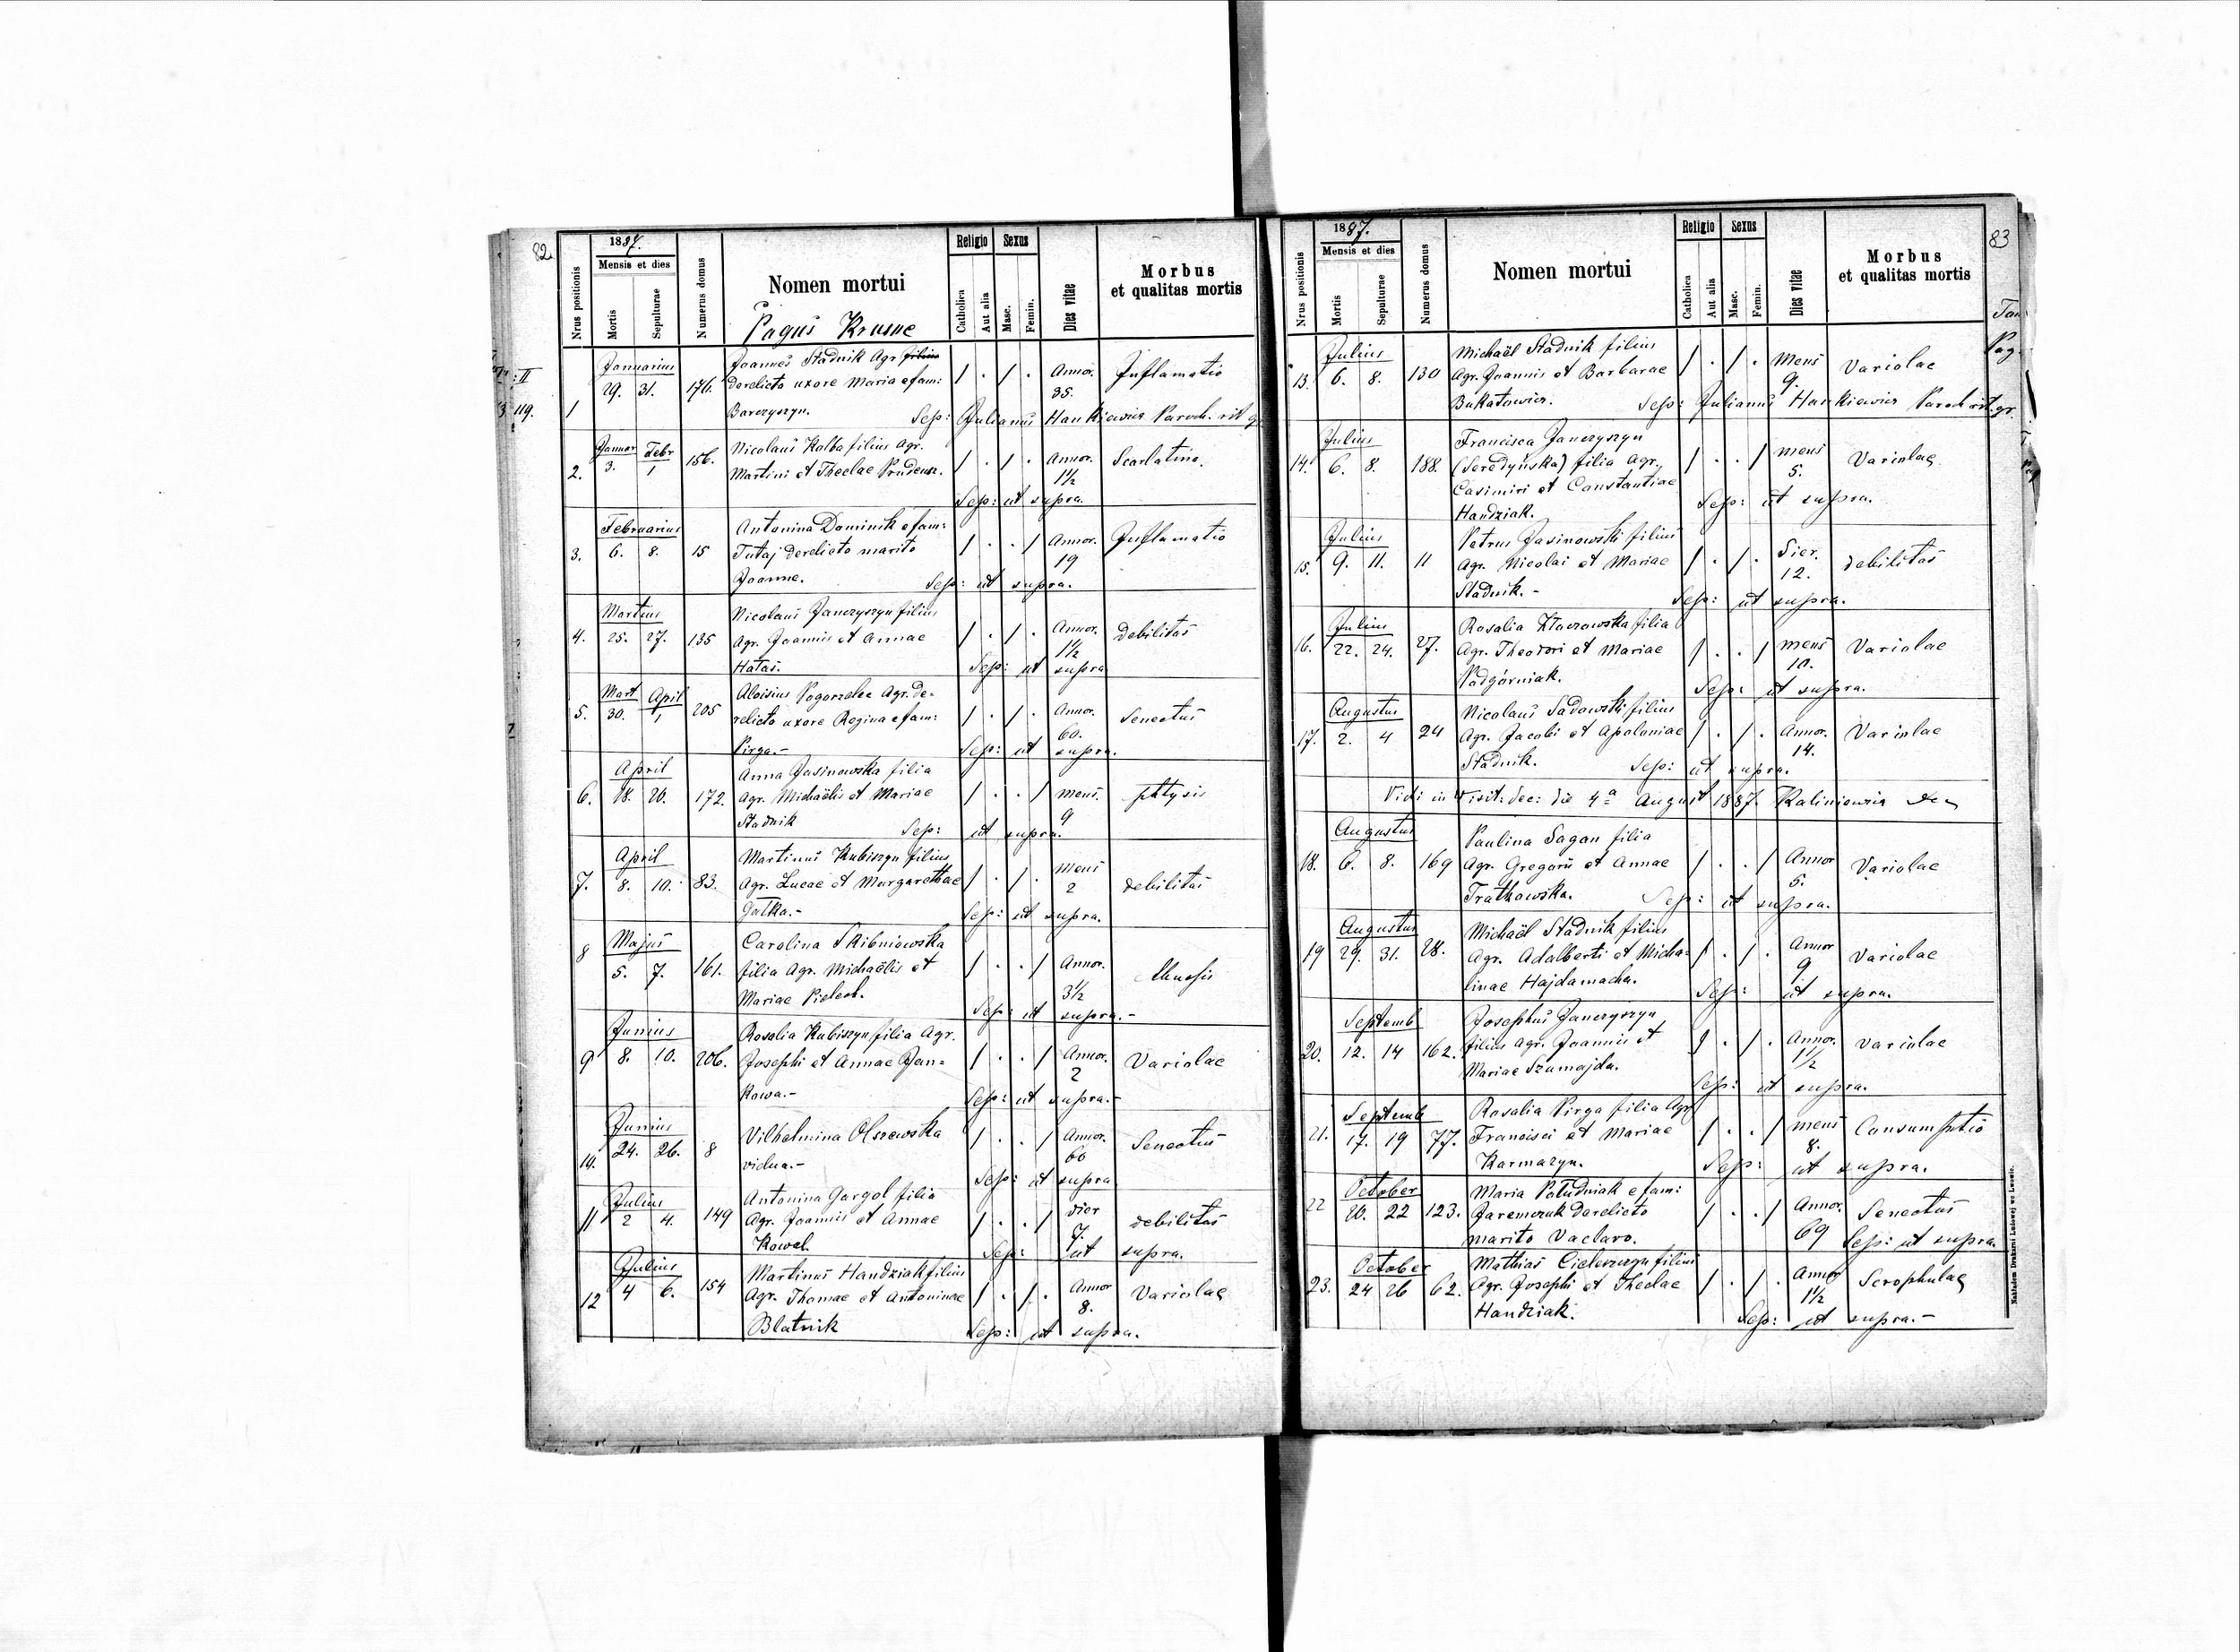 82.
1887.
Nrus positionis
Mensis et dies
Mortis
Sepulturae
Numerus domus
Nomen mortui
Pagus Krusne
Religio
Catholica
Aut alia
Sexus
Masc.
Femin.
Dies vitae
Morbus
et qualitas mortis
1
Januarius
29. 31. 176.
Joannes Stadnik Agr. filius
derelicta uxore Maria e fam:
Barczyszyn.
/ . / . Annor.
35.
Inflamatio
Sep: Julianus Hankiewicz Paroch. rit. g.
2.
Januar Febr
3. 1 156.
Nicolaus Kolba filius Agr.
Martini et Theclae Prudeus.
/ . / . Annor.
1½
Scarlatina.
Sep: ut supra.
3.
Februarius
6. 8. 15
Antonina Dominik e fam:
Tutaj derelicto marito
Joanne.
/ . . / Annor.
19
Inflamatio
Sep: ut supra.
4.
Martius
25. 27. 135
Nicolaus Janczyszyn filius
Agr. Joannis et Annae
Hałas.
/ . / . Annor.
1½
Debilitas
Sep: ut supra
5.
Mart April
30. 1 205
Aloisius Pogorzelec Agr. de-
relicta uxore Regina e fam:
Pirga.-
/ . / . Annor.
60.
Senectus
Sep: ut supra.
6.
April
18. 20. 172.
Anna Jasinowska filia
Agr. Michaëlis et Mariae
Stadnik
/ . . / mens.
9
phtysis
Sep: ut supra.
7.
April
8. 10. 83.
Martinus Kubiszyn filius
Agr. Lucae et Margarethae
Gałka.-
/ . / . Mens
2
debilitas
Sep: ut supra.
8
Majus
5. 7. 161.
Carolina Skibniowska
filia Agr. Michaëlis et
Mariae Pielech.
/ . . / Annor.
3½
Sep: ut supra.-
9
Junius
8. 10. 206.
Rosalia Kubiszyn filia Agr.
Josephi et Annae Jan-
kowa.-
/ . . / Annor.
2
Variolae
Sep: ut supra.-
10.
Junius
24. 26. 8
Vilhelmina Olszewska
vidua.-
/ . . / Annor.
66
Senectus
Sep: ut supra
11
Julius
2 4. 149
Antonina Gargol filia
Agr. Joannis et Annae
Kowal.
/ . . / dier
7.
debilitas
Sep: ut supra.
12
Julius
4 6. 154
Martinus Handziak filius
Agr. Thomae et Antoninae
Blatnik
/ . / . Annor
8.
Variolae
Sep: ut supra.
83
1887.
Nrus positionis
Mensis et dies
Mortis
Sepulturae
Numerus domus
Nomen mortui
Religio
Catholica
Aut alia
Sexus
Masc.
Femin.
Dies vitae
Morbus
et qualitas mortis
13.
Julius
6. 8. 130
Michaël Stadnik filius
Agr. Joannis et Barbarae
Bukatowicz.
/ . / . Mens
9.
Variolae
Sep: Julianus Hankiewicz Paroch rit. gr.
14.
Julius
6. 8. 188.
Francisca Janczyszyn
(Seredyńska) filia Agr.
Casimiri et Constantiae
Handziak.
/ . . / mens
5.
Variolae
Sep: ut supra.
15.
Julius
9. 11. 11
Petrus Jasinowski filius
Agr. Nicolai et Mariae
Stadnik.-
/ . / . Dier.
12.
debilitas
Sep: ut supra.
16.
Julius
22. 24. 27.
Rosalia Kłaczowska filia
Agr. Theodori et Mariae
Padgórniak.
/ . . / mens
10.
Variolae
Sep: ut supra.
17.
Augustus
2. 4 24
Nicolaus Sadowski filius
Agr. Jacobi et Apoloniae
Stadnik.
/ . / . Annor.
14.
Variolae
Sep: ut supra.
Vidi in Visit: dec: die 4ª August 1887. Kaliniewicz
18.
Augustus
6. 8. 169
Paulina Sagan filia
Agr. Gregorii et Annae
Tratkowska.
/ . . / Annor
5.
Variolae
Sep: ut supra.
19
Augustus
29. 31. 28.
Michaël Stadnik filius
Agr. Adalberti et Micha-
linae Hajdamacha.
/ . / . Annor
9.
Variolae
Sep: ut supra.
20.
Septemb
12. 14 162.
Josephus Janczyszyn
filius Agr. Joannis et
Mariae Szumajda.
/ . / . Annor.
1½
Variolae
Sep: ut supra.
21.
Septemb
17. 19 77.
Rosalia Pirga filia Agr
Francisci et Mariae
Karmazyn.
/ . . / mens
8.
Consumptio
Sep: ut supra.
22
October
20. 22 123.
Maria Południak e fam:
Jaremczuk derelicto
marito Vaclavo.
/ . . / Annor.
69
Senectus
Sep: ut supra.
23.
October
24 26 62.
Mathias Cieleszczyn filius
Agr. Josephi et Theclae
Handziak.
/ . / . Annor
1½
Scrophulae
Sep: ut supra.-
Nakładem Drukarni Ludowej we Lwowie.